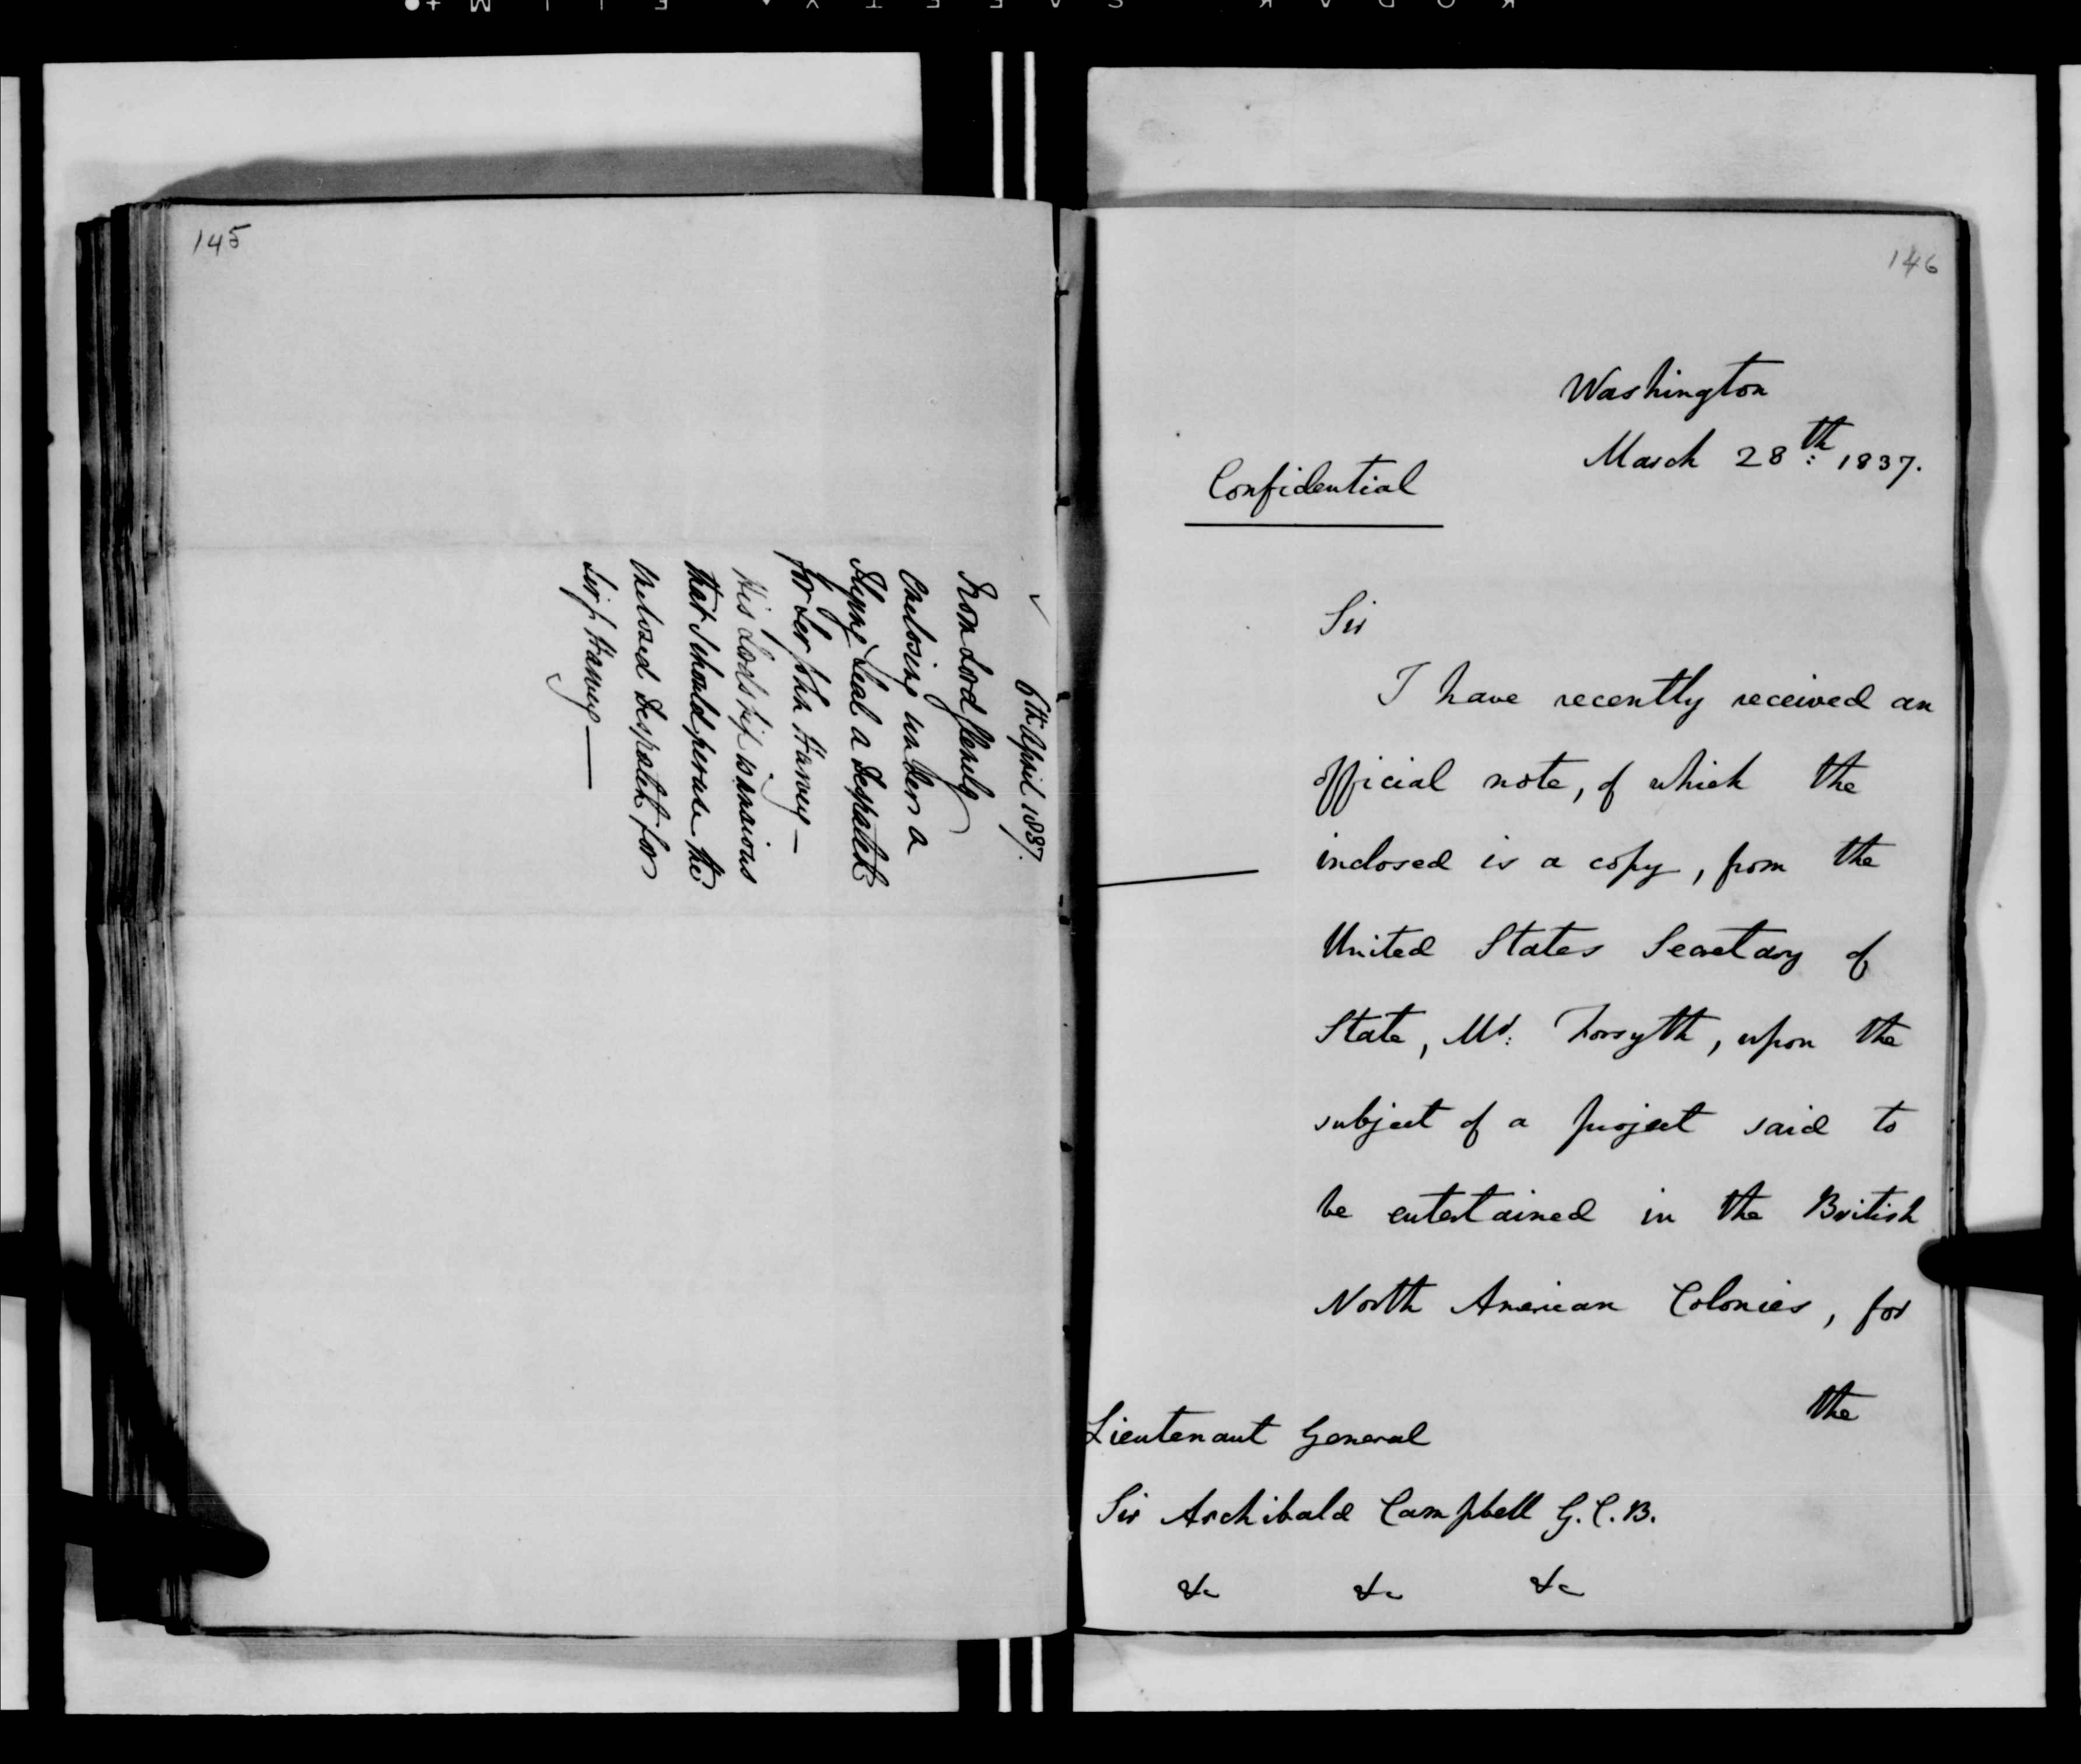 145
6th April 1837.
From Lord Glenelg
Enclosing under a
Flying Seal a Despatch
for Sir John Harvey —
His Lordship is anxious
that I should peruse the
Enclosed Despatch for
Sir J. Harvey —
146
Washington
March 28th: 1837.
Confidential
Sir
I have recently received an
official note, of which the
inclosed is a copy, from the
United States Secretary of
State, Mr: Forsyth, upon the
subject of a project said to
be entertained in the British
North American Colonies, for
the
Lieutenant General
Sir Archibald Campbell G.C.B.
&c &c &c